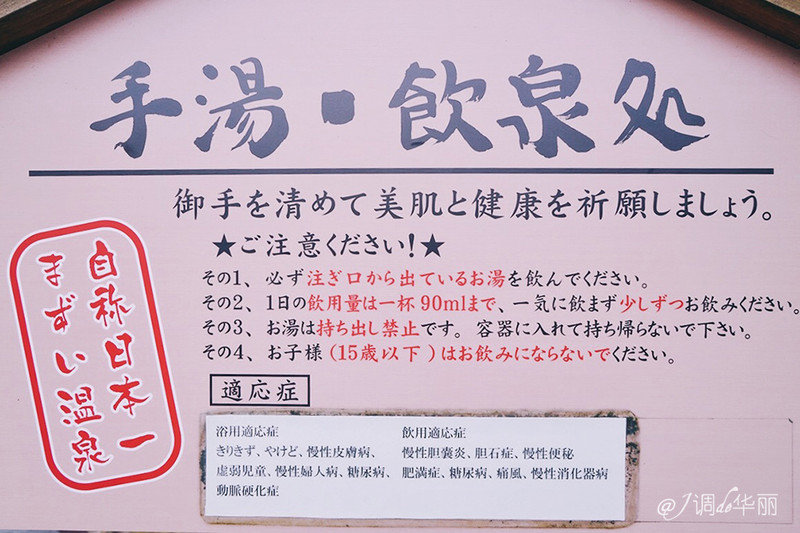 手湯・飲泉処
御手を清めて美肌と健康を祈願しましょう。
★ご注意ください!★
その1、必ず注ぎ口から出ているお湯を飲んでください。
その2、1日の飲用量は一杯90mlまで、一気に飲まず少しずつお飲みください。
その3、お湯は持ち出し禁止です。容器に入れて持ち帰らないで下さい。
その4、お子様(15歳以下)はお飲みにならないでください。
自称日本一
まずい温泉
適応症
浴用適応症
きりきず、やけど、慢性皮膚病、
虚弱児童、慢性婦人病、糖尿病、
動脈硬化症
飲用適応症
慢性胆嚢炎、胆石症、慢性便秘
肥満症、糖尿病、痛風、慢性消化器病
@J调de华丽